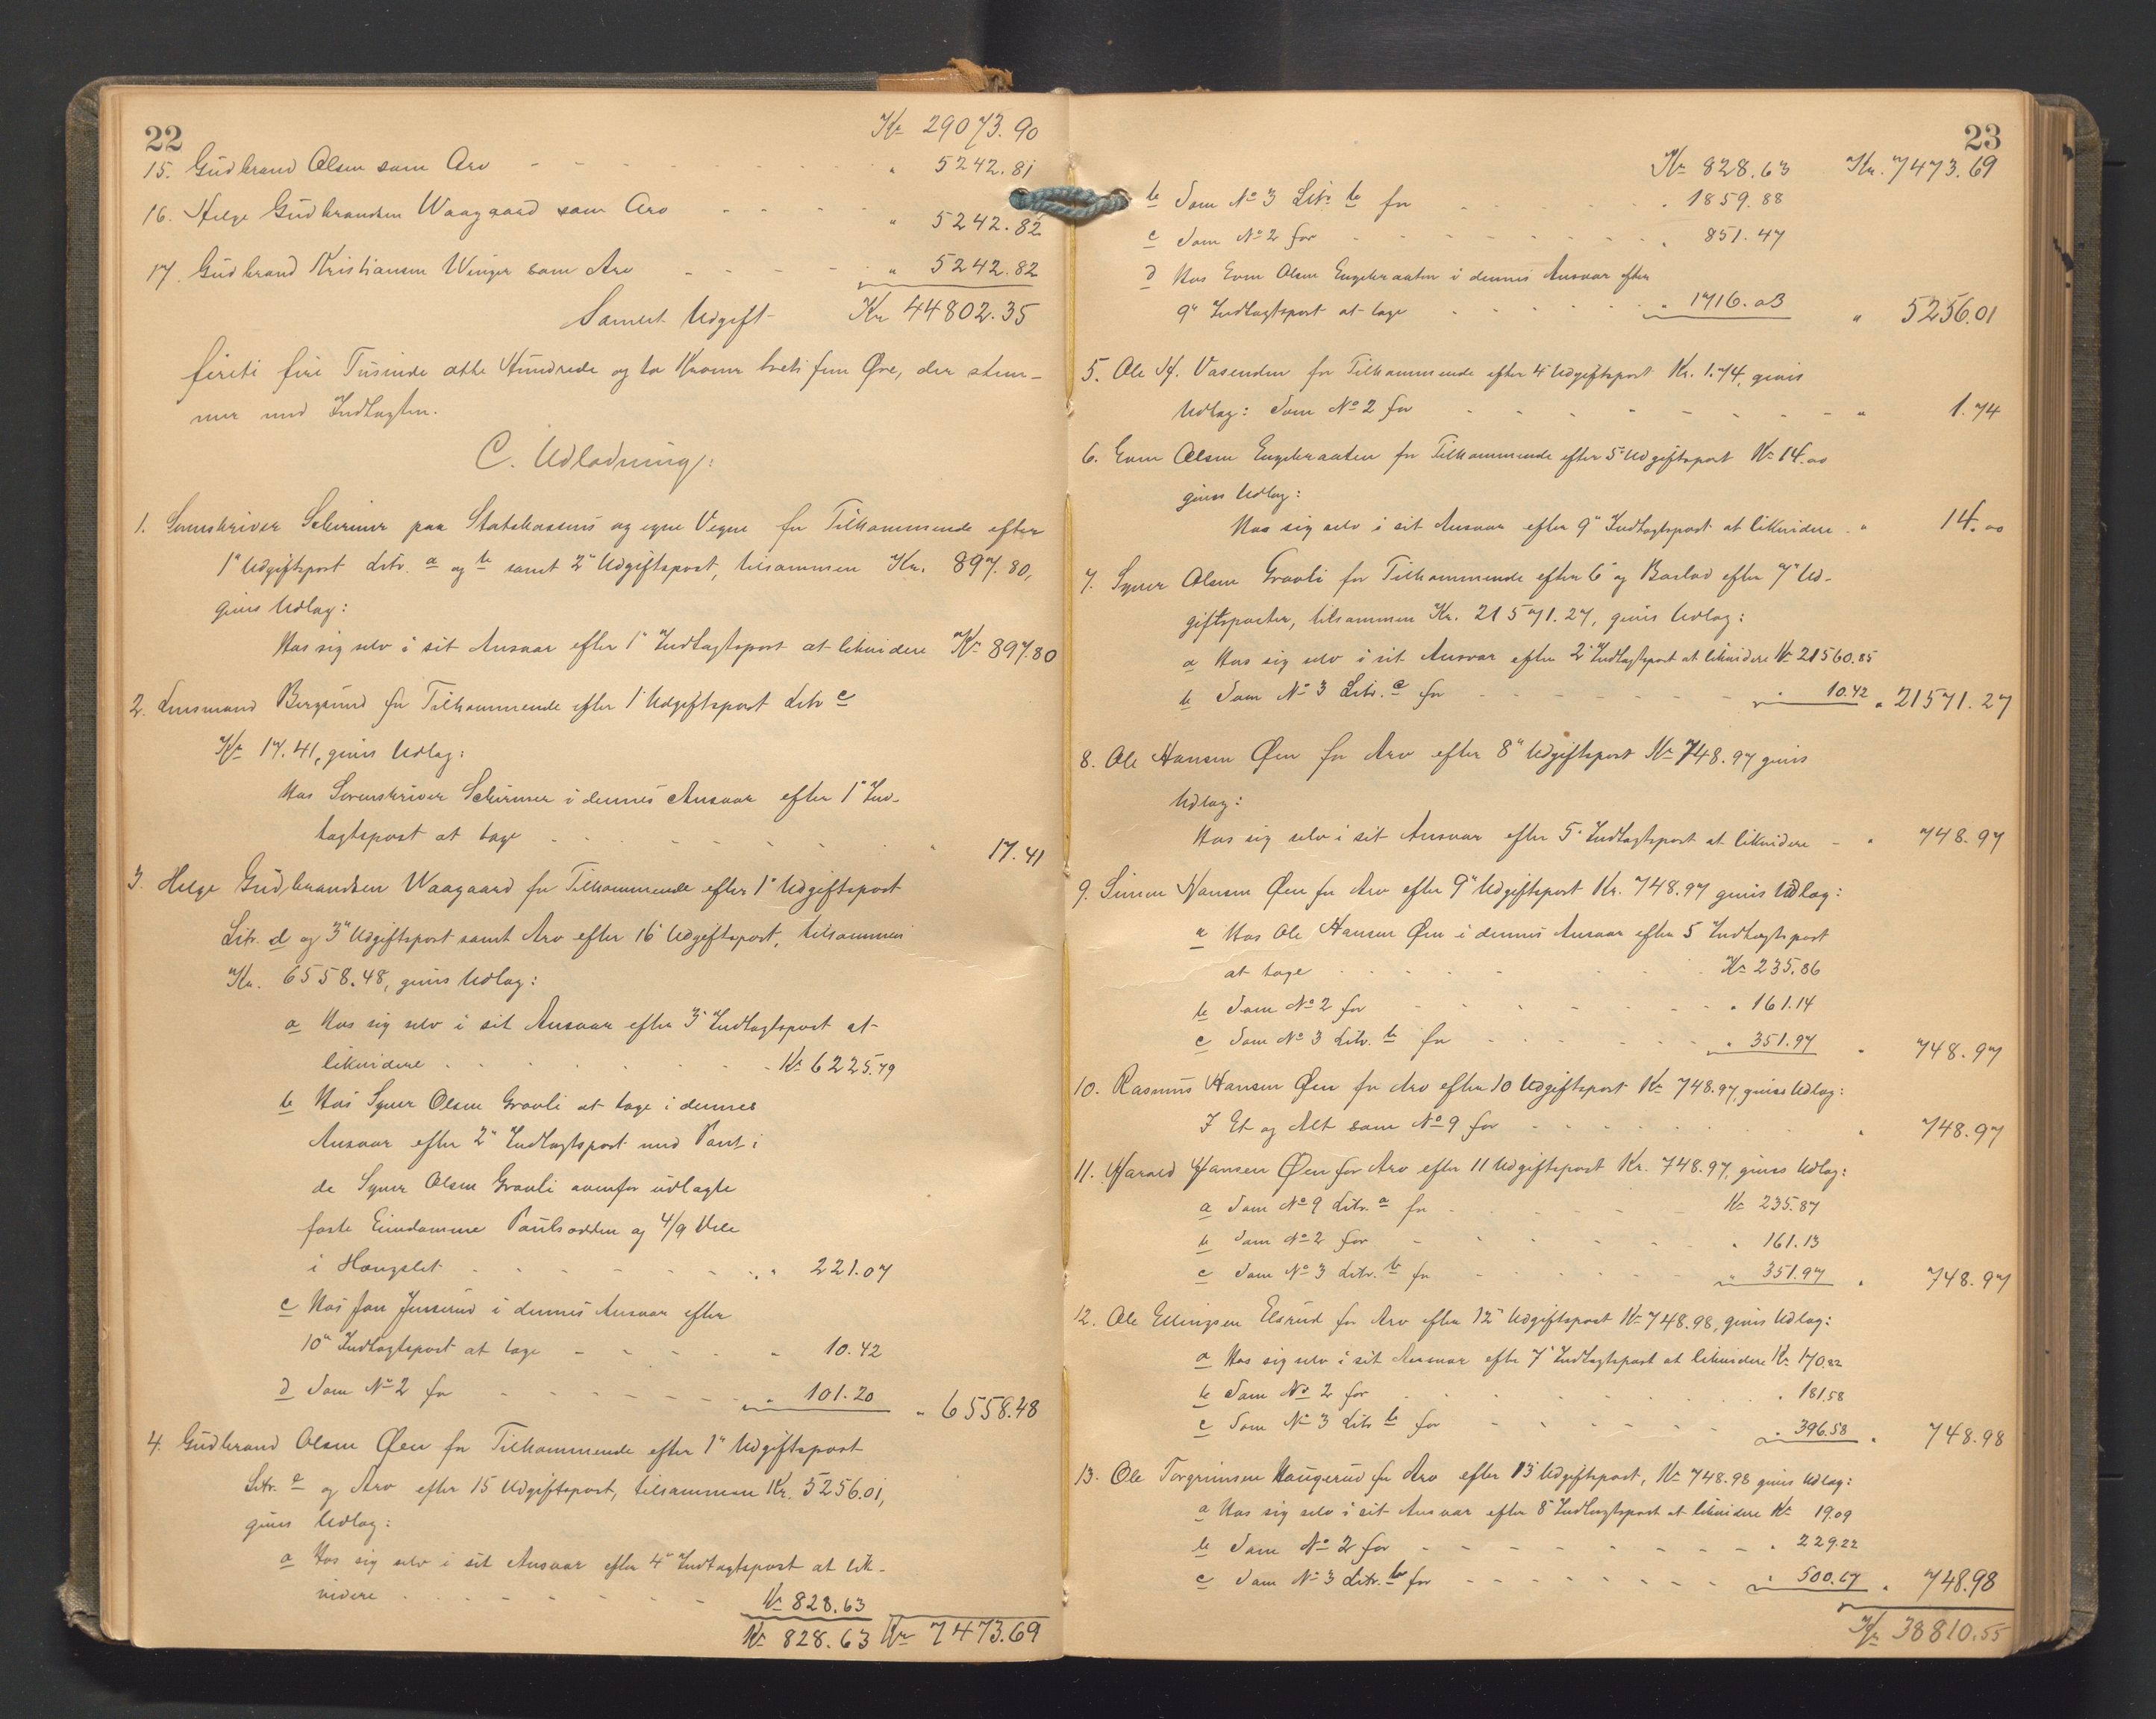 22
Kr. 29073.90
15. Gudbrand Olsen som Arv - - - - - - - " 5242.81
16. Helge Gudbrandsen Waagaard som Arv - - - - " 5242.82
17. Gudbrand Kristiansen Winger som Arv - - - - " 5242.82
Samlet Udgift Kr 44802.35
firti fire Tusinde otte Hundrede og to Kroner treti fem Øre, der stem-
mer med Indtægten.
C. Udlodning:
1. Sorenskriver Schirmer paa Statskassens og egne Vegne for Tilkommende efter
1" Udgiftspost Litr. a og b samt 2" Udgiftspost, tilsammen Kr. 897.80,
gives Udlag:
Hos sig selv i sit Ansvar efter 1" Indtægtspost at likvidere Kr. 897.80
2. Lensmand Bergsund for Tilkommende efter 1" Udgiftspost Litr c
Kr 17.41, gives Udlag:
Hos Sorenskriver Schirmer i dennes Ansvar efter 1" Ind-
tægtspost at tage - - - - - - " 17.41
3. Helge Gudbrandsen Waagaard for Tilkommende efter 1" Udgiftspost
Litr. d og 3" Udgiftspost samt Arv efter 16" Udgiftspost, tilsammen
Kr. 6558.48, gives Udlag:
a Hos sig selv i sit Ansvar efter 3" Indtægtspost at
likvidere - - - - - Kr. 6225.79
b Hos Syver Olsen Gravli at tage i dennes
Ansvar efter 2" Indtægtspost med Pant i
de Syver Olsen Gravli ovenfor udlagte
faste Eiendomme Paulsodden og 4/9 Dele
i Hougslet - - - - - - - " 221.07
c Hos Jon Jenserud i dennes Ansvar efter
10" Indtægtspost at tage - - - - " 10.42
d Som No 2 for - - - - - - - " 101.20 " 6558.48
4. Gudbrand Olsen Øen for Tilkommende efter 1" Udgiftspost
Litr. e og Arv efter 15 Udgiftspost, tilsammen Kr. 5256.01,
gives Udlag:
a Hos sig selv i sit Ansvar efter 4" Indtægtspost at lik-
videre - - - - - - - Kr 828.63
Kr. 828.63 Kr 7473.69
23
Kr. 828.63 Kr. 7473.69
b Som No 3 Litr. b for - - - - - " 1859.88
c Som No 2 for - - - - - - - - " 851.47
d Hos Even Olsen Engebraaten i dennes Ansvar efter
9" Indtægtspost at tage - - - - - " 1716.03 " 5256.01
5. Ole H. Vasenden for Tilkommende efter 4" Udgiftspost Kr. 1.74, gives
Udlag: Som No 2 for - - - - - - - - " 1.74
6. Even Olsen Engebraaten for Tilkommende efter 5" Udgiftspost Kr 14.00
gives Udlag:
Hos sig selv i sit Ansvar efter 9" Indtægtspost at likvidere - " 14.00
7. Syver Olsen Gravli for Tilkommende efter 6" og Boslod efter 7" Ud-
giftsposter, tilsammen Kr. 21571.27, gives Udlag:
a Hos sig selv i sit Ansvar efter 2" Indtægtspost at likvidere Kr 21560.85
b Som No 3 Litr. c for - - - - - - - " 10.42 " 21571.27
8. Ole Hansen Øen for Arv efter 8" Udgiftspost Kr 748.97 gives
Udlag:
Hos sig selv i sit Ansvar efter 5" Indtægtspost at likvidere - " 748.97
9. Simen Hansen Øen for Arv efter 9" Udgiftspost Kr. 748.97 gives Udlag:
a Hos Ole Hansen Øen i dennes Ansvar efter 5 Indtægtspost
at tage - - - - - - Kr 235.86
b Som No 2 for - - - - - - - " 161.14
c Som No 3 Litr. b for - - - - - " 351.97 " 748.97
10. Rasmus Hansen Øen for Arv efter 10 Udgiftspost Kr 748.97, gives Udlag:
I Et og Alt som No 9 for - - - - - - - " 748.97
11. Harald Hansen Øen for Arv efter 11 Udgiftspost Kr. 748.97, gives Udlag:
a Som No 9 Litr. a for - - - - - Kr 235.87
b Som No 2 for - - - - - - " 161.13
c Som No 3 Litr. b for - - - - - - " 351.97 " 748.97
12. Ole Ellingsen Elsrud for Arv efter 12" Udgiftspost Kr 748.98, gives Udlag:
a Hos sig selv i sit Ansvar efter 7" Indtægtspost at likvidere Kr. 170.82
b Som No 2 for - - - - - - - " 181.58
c Som No 3 Litr b for - - - - - - " 396.58 " 748.98
13. Ole Torgrimsen Haugerud for Arv efter 13 Udgiftspost, Kr 748.98 gives Udlag:
a Hos sig selv i sit Ansvar efter 8" Indtægtspost at likvidere Kr 19.09
b Som No 2 for - - - - - - - - - " 229.22
c Som No 3 Litr. b for - - - - - - - - " 500.67 " 748.98
Kr 38810.55